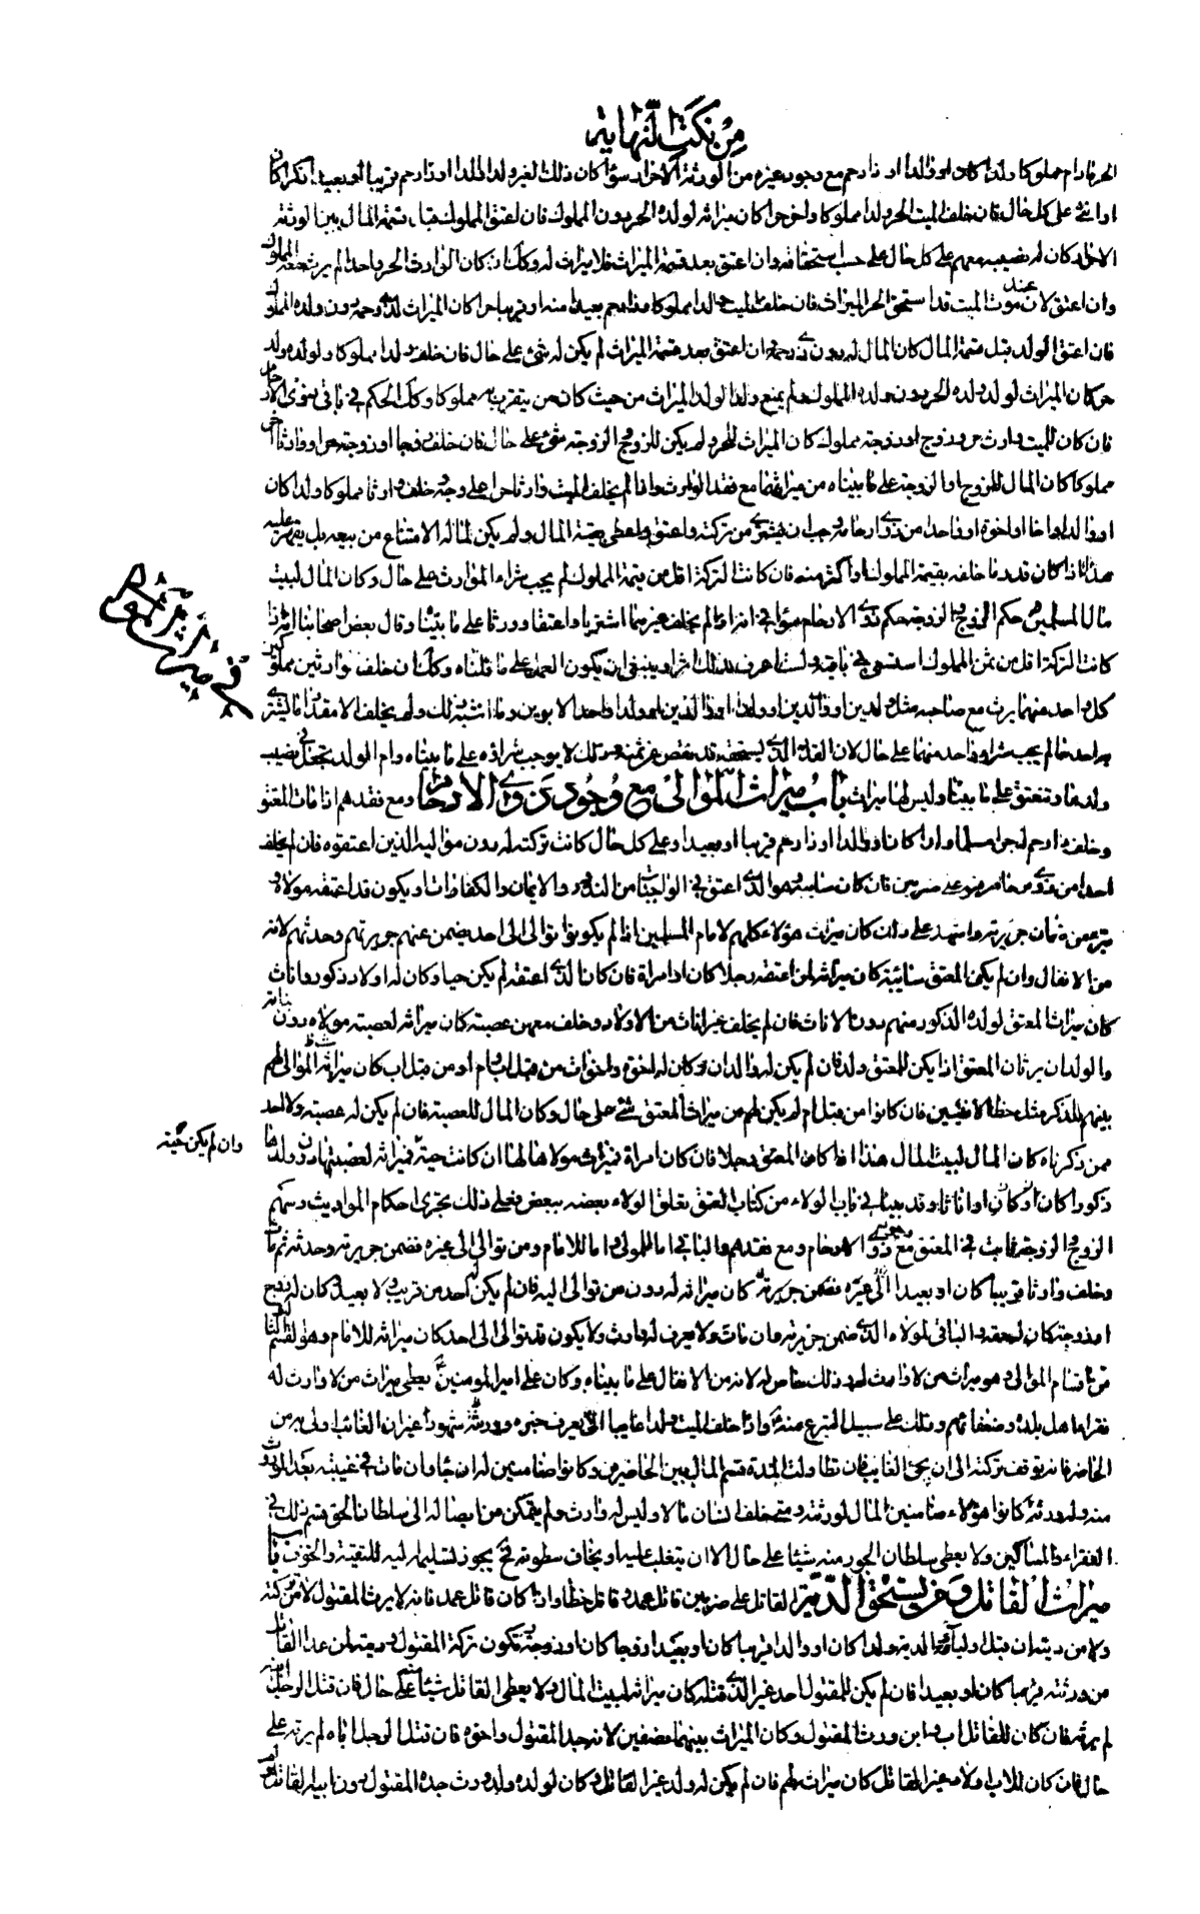 من نكت النهاية
الحر مادام مملوكا ولدا كان او والدا او ذا رحم مع وجود غيره من الورثة الاحرار سواء كان ذلك لغير ولدا او والدا او ذا رحم قريبا او بعيدا ذكرا كان
او انثى على كل حال فان خلف الميت الحر ولدا مملوكا واخر حرا كان ميراثه لولده الحر دون المملوك فان اعتق المملوك قبل قسمة المال بين الورثة
الاحرار كان له نصيبه معهم على كل حال على حسب استحقاقه وان اعتق بعد قسمة الميراث فلا ميراث له وكذلك ان كان الوارث الحر واحدا لم يرث معه المملوك
وان اعتق لان عند موت الميت قد استحق الحر الميراث فان خلف الميت ولدا مملوكا وذا رحم بعيدا منه او قريبا حرا كان الميراث لذي رحمه دون ولده المملوك
فان اعتق الولد قبل قسمة المال كان المال له دون ذي رحمه وان اعتق بعد قسمة الميراث لم يكن له شئ على حال فان خلف ولدا مملوكا ولولده ولد
حر كان الميراث لولد ولده الحر دون ولده المملوك ولم يمنع ولد الولد الميراث من حيث كان من يتقرب به مملوكا وكذلك الحكم في باقي ذوي الارحام
فان كان للميت وارث حر وزوج او زوجة مملوك كان الميراث للحر ولم يكن للزوج او الزوجة شئ على حال فان خلف زوجا او زوجة حرا ووارثا اخر
مملوكا كان المال للزوج او الزوجة على ما بيناه من ميراثهما مع فقد الوارث واذا لم يخلف الميت وارثا حرا على وجه وخلف وارثا مملوكا ولدا كان
او والدا او اخا او اخوة او واحدا من ذوي ارحامه وجب ان يشترى من تركته واعتق واعطى بقية المال ولم يكن لمالكه الامتناع من بيعه بل يقهر عليه
هذا اذا كان قدر ما خلفه بقيمة المملوك او اكثر منه فان كانت التركة اقل من قيمة المملوك لم يجب شراء الوارث على حال وكان المال لبيت
مال المسلمين حكم الزوج والزوجة حكم ذوي الارحام سواء في انه اذا لم يخلف غيرهما اشتريا واعتقا وورثا على ما بيناه وقال بعض اصحابنا انه اذا
كانت التركة اقل من ثمن المملوك استسعي في باقيه ولست اعرف بذلك اثرا وينبغي ان يكون العمل على ما قلناه وكذلك ان خلف وارثين مملوكين
كل واحد منهما يرث مع صاحبه مثل ولدين او والدين او ولدا احد الذين او ولدا واحد الابوين وما اشبه ذلك ولم يخلف الا مقدار ما يشترى
به احدهما لم يجب شراء واحد منهما على حال لان القدر الذي يستحقه قد نقص عن ثمنه وذلك لا يوجب شراؤه على ما بيناه وام الولد تجعل في نصيب
ولدها وتنعتق على ما بيناه وليس لها ميراث باب ميراث الموالى مع وجود ذوي الارحام ومع فقدهم اذا مات المعتق
وخلف ذا رحم له حر مسلما ولدا كان او والدا او ذا رحم قريبا او بعيدا وعلى كل حال كانت تركته له دون مواليه الذين اعتقوه فان لم يخلف
احدا من ذوي رحامه فهو على ضربين فان كان سائبة وهو الذي اعتق في الواجبات من النذور والايمان والكفارات او يكون قد اعتقه مولاه
وتبرء من ضمان جريرته واشهد على ذلك كان ميراث هؤلاء كلهم لامام المسلمين اذا لم يكونوا توالى الى احد يضمن عنهم جريرتهم وحدثهم لانه
من الانفال وان لم يكن المعتق سائبة كان ميراثه لمن اعتقه رجلا كان او امراة فان كان الذي اعتقه لم يكن حيا وكان له اولاد ذكور واناث
كان ميراث المعتق لولده الذكور منهم دون الاناث فان لم يخلف غير اناث من الاولاد وخلف معهن عصبة كان ميراثه لعصبة مولاه دون بناته
والوالدان يرثان المعتق اذا لم يكن للمعتق ولد فان لم يكن له والدان وكان له اخوة واخوات من قبل اب وام او من قبل اب كان ميراث الموالى لهم
بينهم للذكر مثل حظ الانثيين فان كانوا من قبل ام لم يكن لهم من ميراث المعتق شئ على حال وكان المال للعصبة فان لم يكن له عصبة ولا احد
ممن ذكرناه كان المال لبيت المال هذا اذا كان المعتق رجلا فان كان امراة فميراث مولاها لها ان كانت حية فميراثه لعصبتها دون ولدها
ذكورا كان او كان اناثا وقد بينا في باب الولاء من كتاب العتق تعلق الولاء بعضه ببعض فعلى ذلك يجرى احكام المواريث وسهم
الزوج والزوجة ثابت في المعتق مع ذوي الارحام ومع فقدهم والباقي اما للموالي واما للامام ومن توالى الى غيره فضمن جريرته وحدثه ثم مات
وخلف وارثا قريبا كان او بعيدا كان ميراثه له دون من توالى اليه فان لم يكن له احد من قريب ولا بعيد كان له زوج
او زوجة كان له حقه والباقي لمولاه الذي ضمن جريرته ومن مات ولا يعرف له وارث ولا يكون قد توالى الى احد كان ميراثه للامام وهو القسم الثالث
من اقسام الموالى وهو ميراث من لا وارث له وذلك خاص له لانه من الانفال على ما بيناه وكان علي امير المؤمنين يعطي ميراث من لا وارث له
فقراء اهل بلده وضعفائهم وذلك على سبيل التبرع منه واذا خلف الميت ولدا غائبا لا يعرف خبره وورثة شهودا غير ان الغائب اولى به من
الحاضر فانه يوقف تركته الى ان يجئ الغائب فان تطاولت المدة قسم المال بين الحاضرين وكانوا ضامنين له ان جاء وان مات في غيبته بعد الموروث
منه وله ورثة كانوا هؤلاء ضامنين المال لورثته ومتى خلف انسان مالا وليس له وارث ولم يتمكن من ايصاله الى سلطان الحق قسم ذلك في
الفقراء والمساكين ولا يعطى سلطان الجور منه شيئا على حال الا ان يتغلب عليه او يخاف سطوته فح يجوز تسليمه اليه للتقية والخوف باب
ميراث القاتل ومن يستحق الدية القاتل على ضربين قاتل عمد وقاتل خطا واذا كان قاتل عمد فانه لا يرث المقتول لا من تركته
ولا من ديته ان قبل اولياؤه الدية ولدا كان او والدا قريبا كان او بعيدا زوجا كان او زوجة وتكون تركة المقتول وديته لمن عدا القاتل
من ورثته قريبا كان او بعيدا فان لم يكن للمقتول احد غير الذي قتله كان ميراثه لبيت المال ولا يعطى القاتل شيئا على حال فان قتل الرجل ابنه
لم يرثه فان كان للقاتل اب وابن ورث المقتول وكان الميراث بينهما نصفين لانه جد المقتول واخوه فان قتل الرجل اباه لم يرثه على
حال فان كان للاب اولاد غير القاتل كان ميراثه لهم فان لم يكن له ولد غير القاتل وكان لولده ولد ورث جده المقتول دون ابيه القاتل
وان لم يكن حية